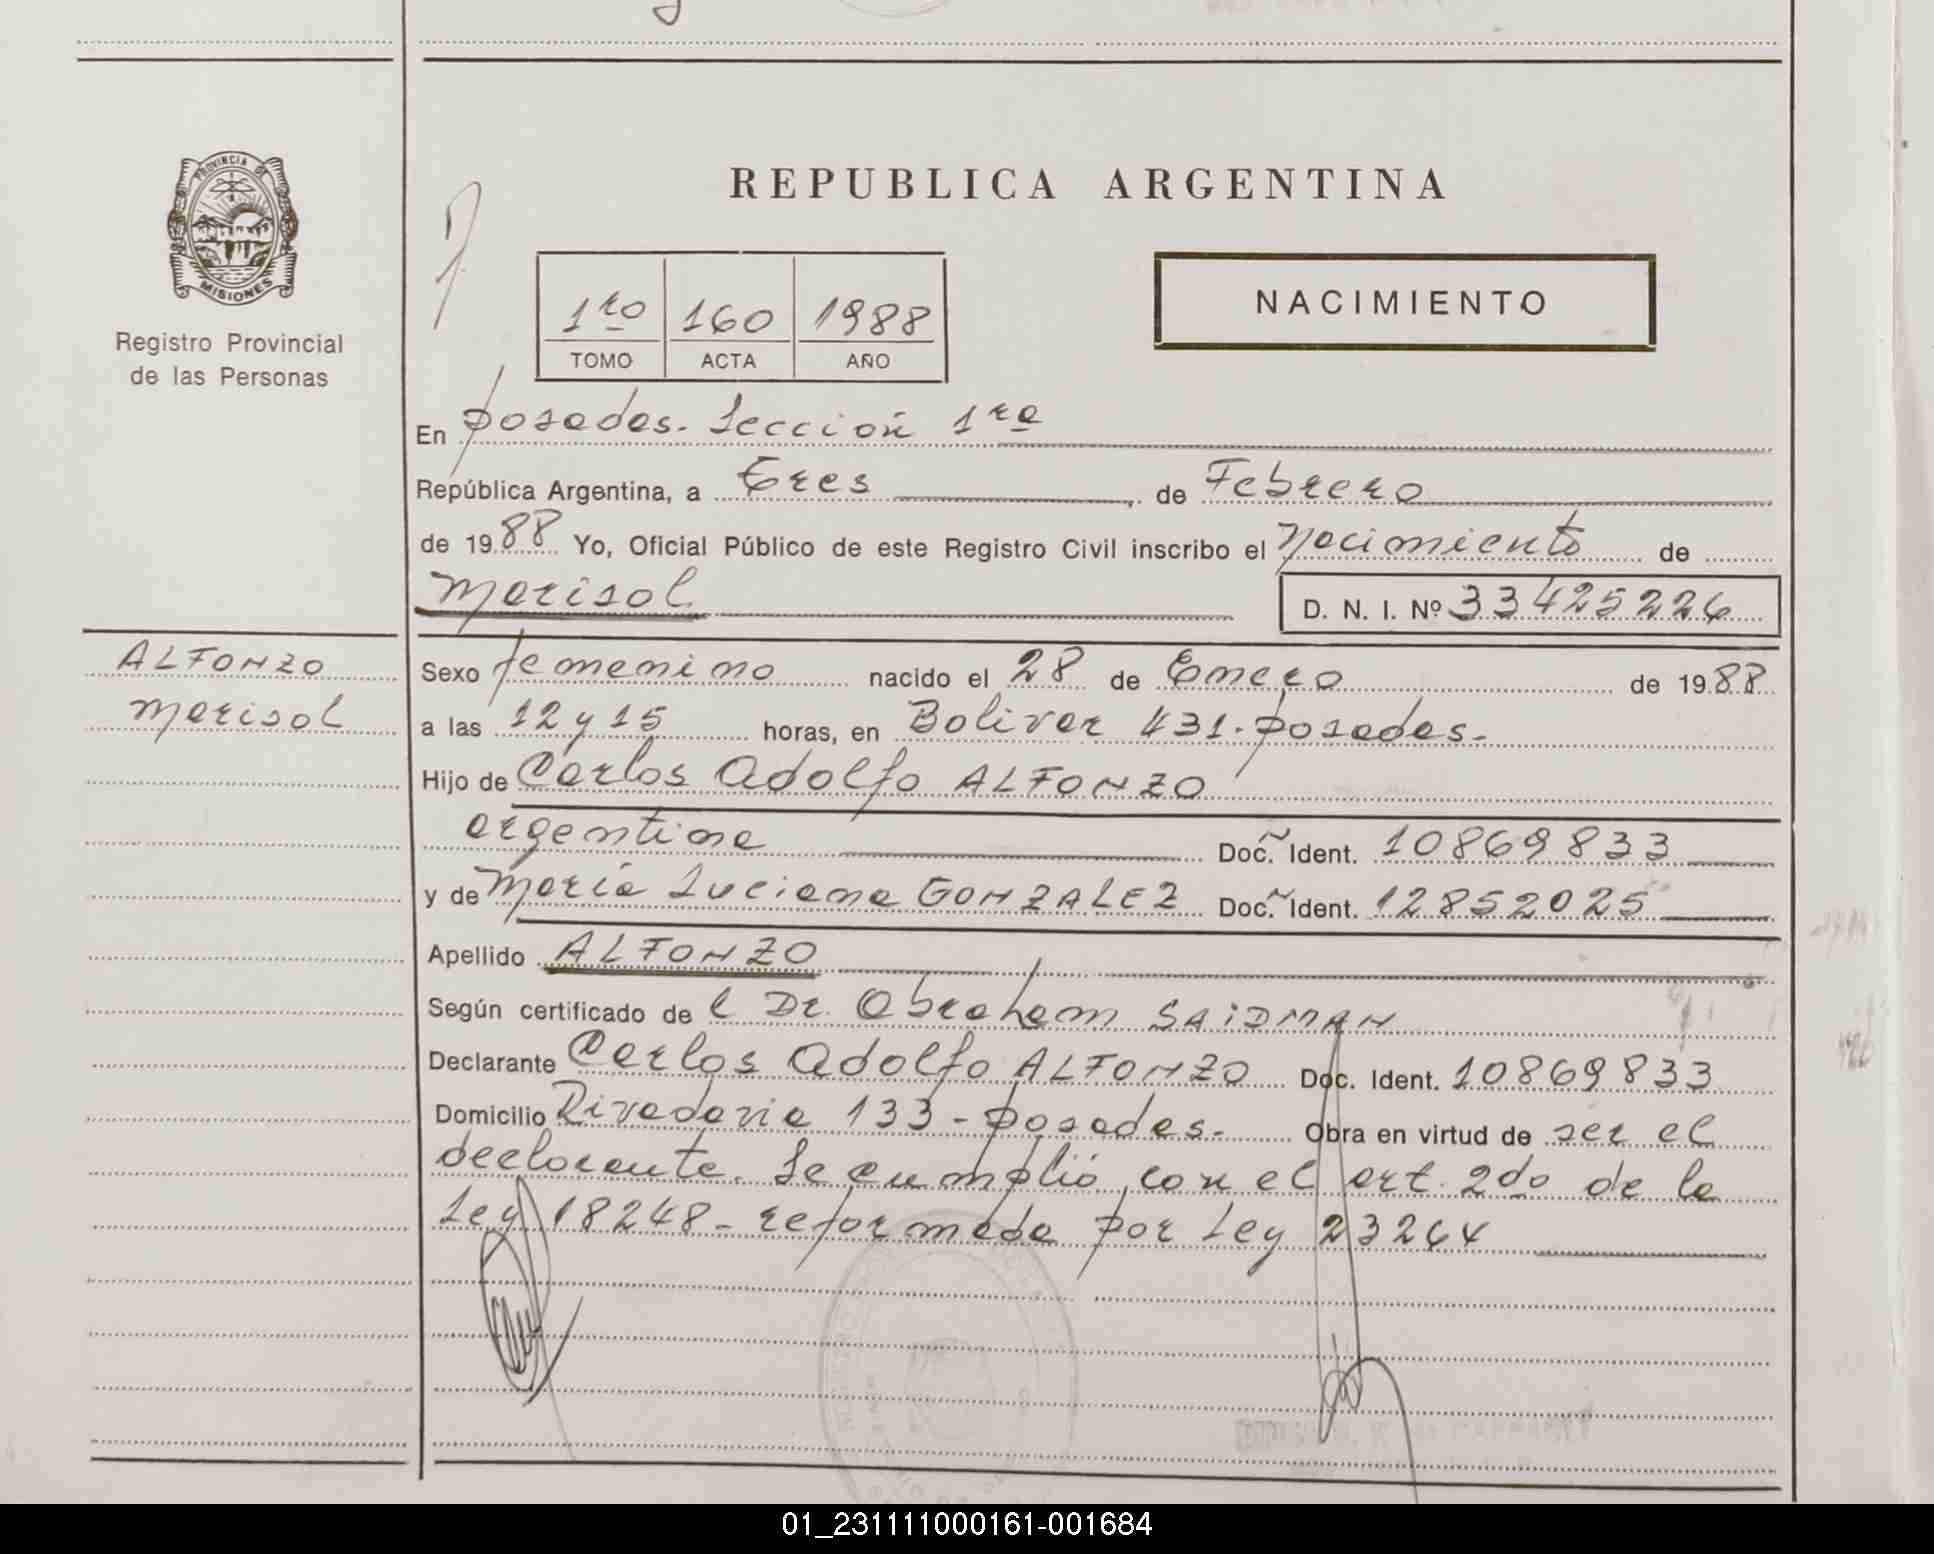 PROVINCIA DE
MISIONES
Registro Provincial
de las Personas
ALFONZO
Marisol
REPUBLICA ARGENTINA
1ro 160 1988
TOMO ACTA AÑO
NACIMIENTO
En Posadas. Sección 1ra
República Argentina, a tres de Febrero
de 1988 Yo, Oficial Público de este Registro Civil inscribo el Nacimiento de
Marisol D. N. I. Nº 33425226
Sexo femenino nacido el 28 de Enero de 1988
a las 12 y 15 horas, en Bolivar 431. Posadas.
Hijo de Carlos Adolfo ALFONZO
argentina Doc. Ident. 10869833
y de María Luciana GONZALEZ Doc. Ident. 12852025
Apellido ALFONZO
Según certificado de l Dr. Abraham SAIDMAN
Declarante Carlos Adolfo ALFONZO Doc. Ident. 10869833
Domicilio Rivadavia 133 - Posadas. Obra en virtud de ser el
declarante. Se cumplió con el art. 2do de la
Ley 18248 - reformada por Ley 23264
01_231111000161-001684